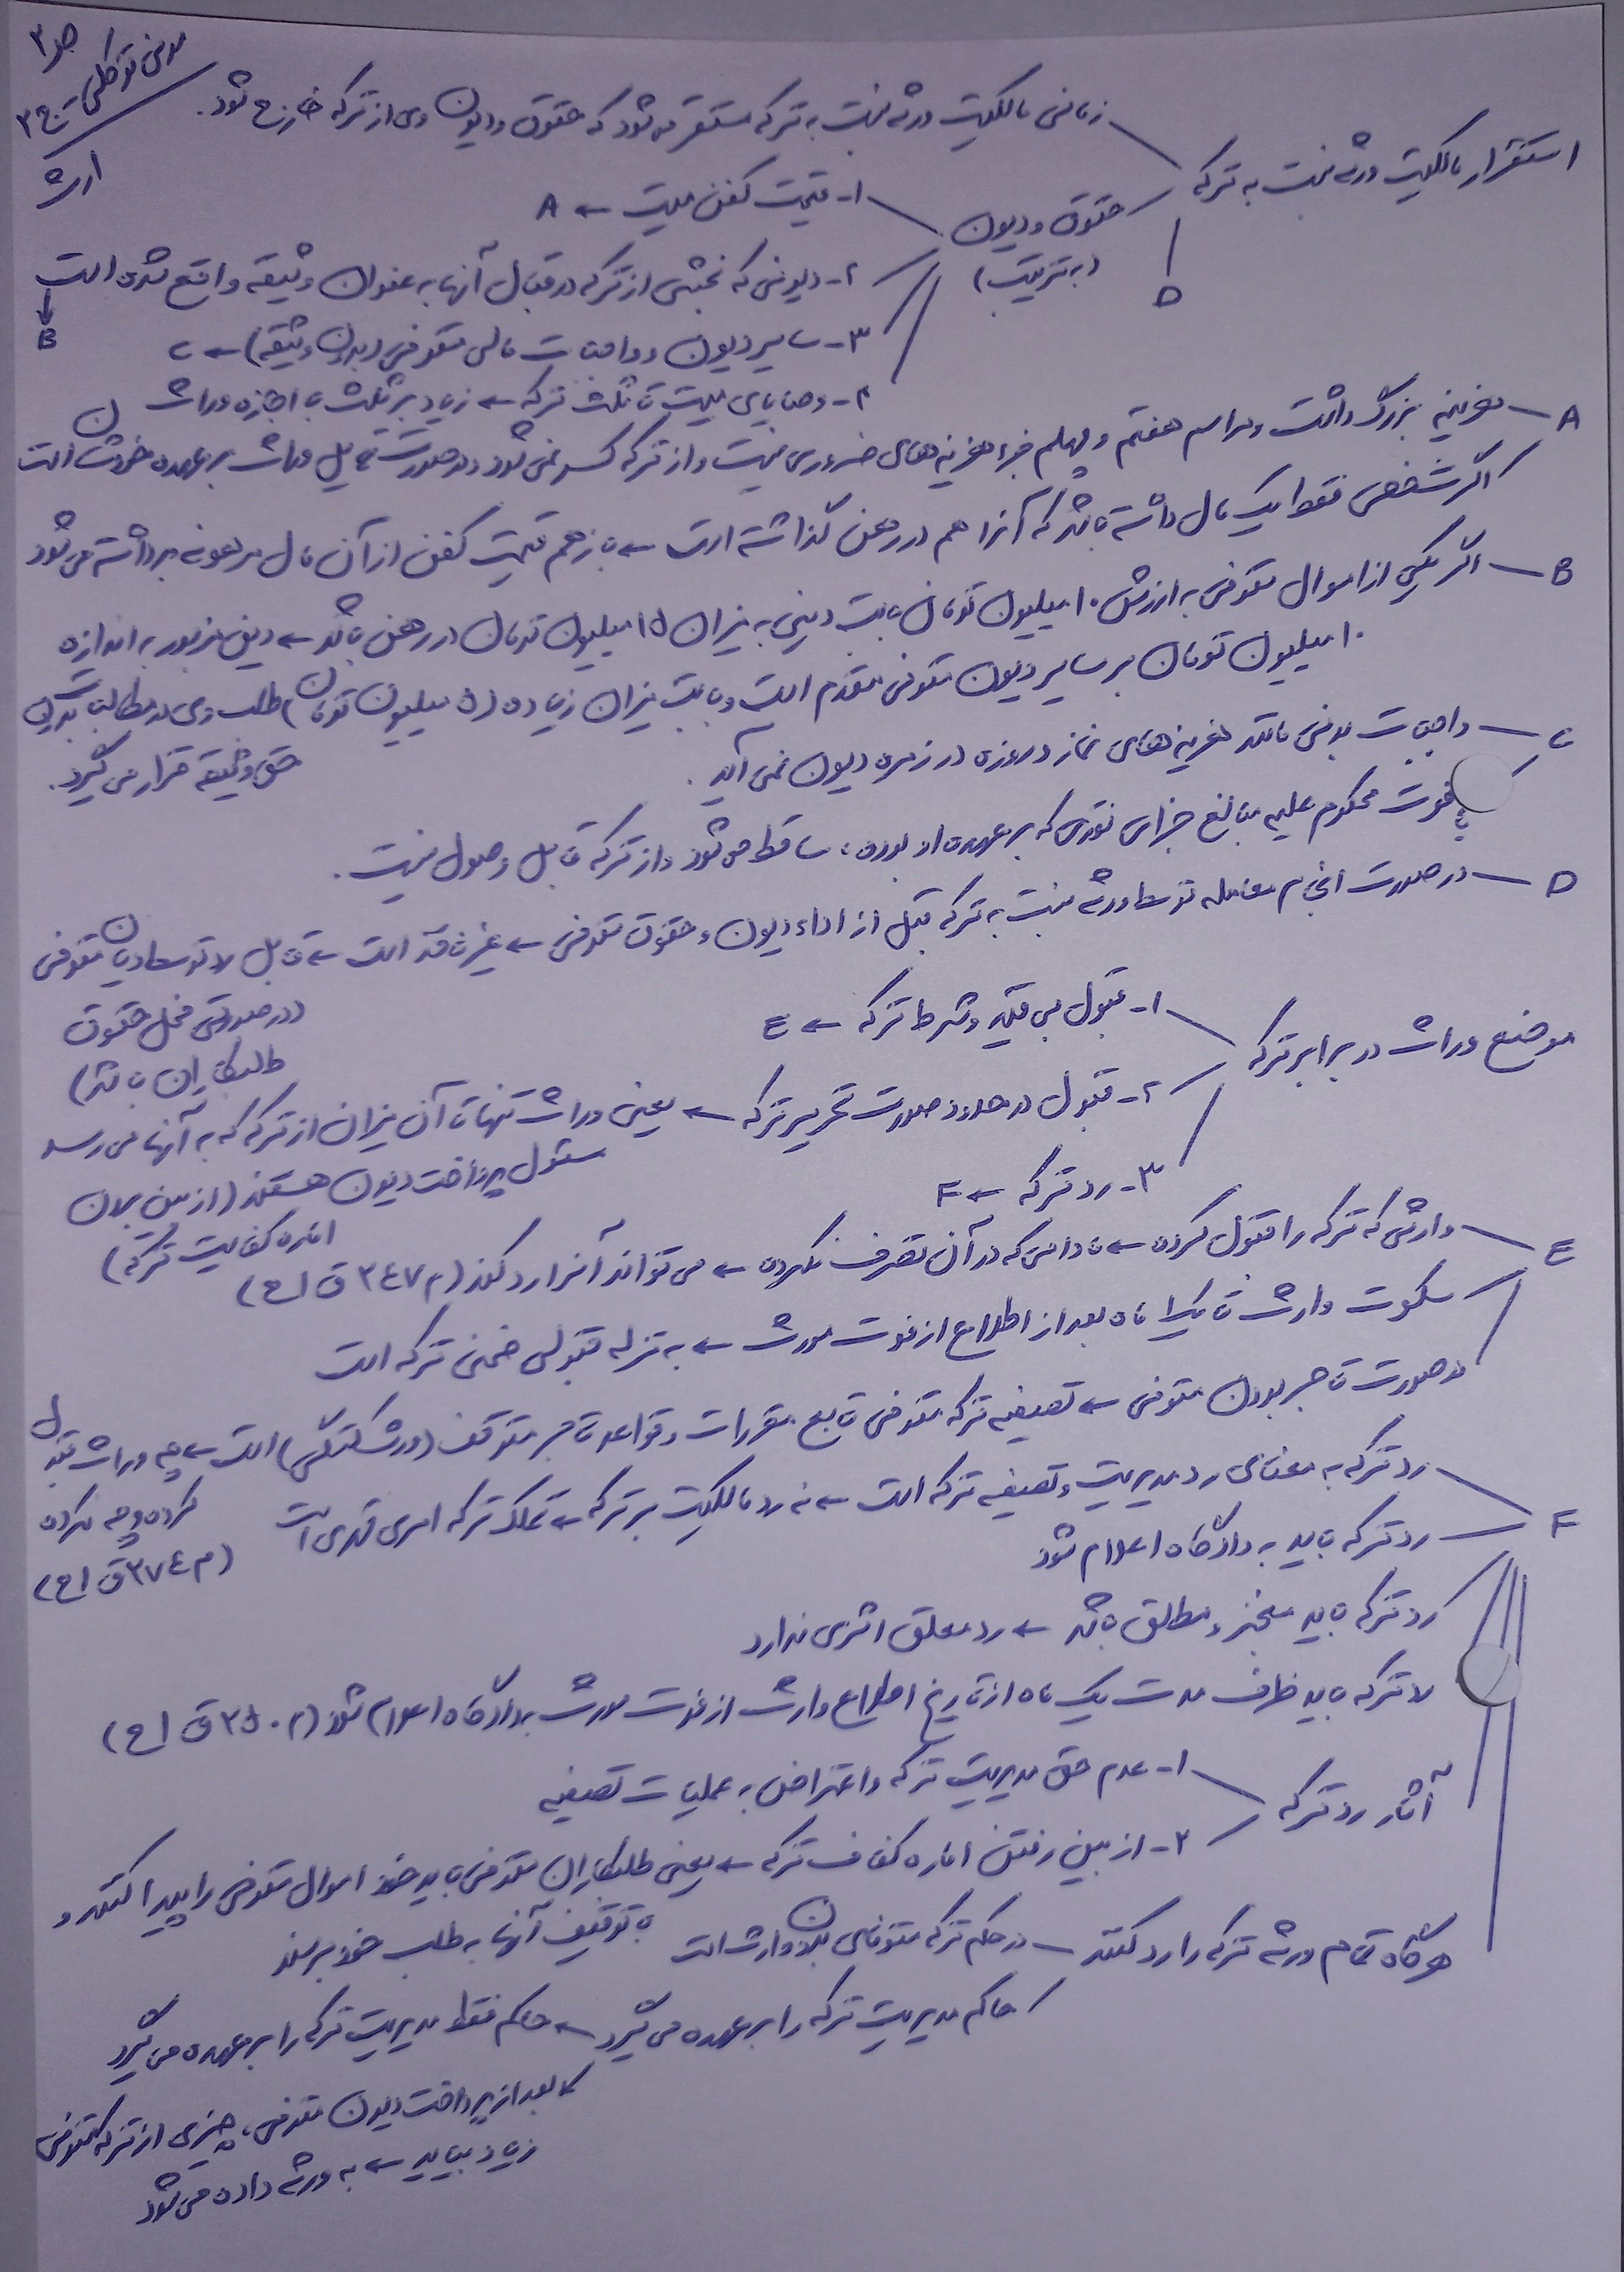 ص ۳
مدنی توکلی ج ۳
ارث
استقرار مالکیت ورثه نسبت به ترکه
زمانی مالکیت ورثه نسبت به ترکه مستقر می‌شود که حقوق و دیون وی از ترکه خارج شود.
D
حقوق و دیون
(به ترتیب)
۱- قیمت کفن میت ← A
۲- دیونی که بخشی از ترکه در قبال آنها به عنوان وثیقه واقع شده است
B
۳- سایر دیون و واجبات مالی متوفی (بدون وثیقه) ← C
۴- وصایای میت تا ثلث ترکه ← زیاد بر ثلث با اجازه وراث
A – هزینه بزرگ داشت و مراسم هفتم و چهلم جزء هزینه‌های ضروری نیست و از ترکه کسر نمی‌شود و در صورت تمایل وراث بر عهده خودشان است
اگر شخصی فقط یک مال داشته باشد که آنرا هم در رهن گذاشته است ← باز هم قیمت کفن از آن مال مرهونه برداشته می‌شود
B – اگر یکی از اموال متوفی به ارزش ۱۰ میلیون تومان بابت دینی به میزان ۱۵ میلیون تومان در رهن باشد ← دین مزبور به اندازه
۱۰ میلیون تومان بر سایر دیون متوفی مقدم است و بابت میزان زیاده (۵ میلیون تومان) طلب وی در مطالبات بدون
حق وثیقه قرار می‌گیرد.
C – واجبات بدنی مانند هزینه‌های نماز و روزه در زمره دیون نمی‌آید.
با فوت محکوم علیه مبالغ جزای نقدی که بر عهده او بوده، ساقط می‌شود و از ترکه قابل وصول نیست.
D – در صورت انجام معامله توسط ورثه نسبت به ترکه قبل از اداء دیون و حقوق متوفی ← غیر نافذ است ← قابل رد توسط دیان متوفی
(در صورتی مخل حقوق
طلبکاران باشد)
موضع وراث در برابر ترکه
۱- قبول بی قید و شرط ترکه ← E
۲- قبول در حدود صورت تحریر ترکه ← یعنی وراث تنها تا آن میزان از ترکه که به آنها می‌رسد
مسئول پرداخت دیون هستند (از بین بردن
اماره کفایت ترکه)
۳- رد ترکه ← F
E – وارثی که ترکه را قبول کرده ← تا دامی که در آن تصرف نکرده ← می‌تواند آنرا رد کند (م ۲۴۷ ق ا ح)
سکوت وارث تا یک ماه بعد از اطلاع از فوت مورث ← به منزله قبولی ضمنی ترکه است
در صورت تاجر بودن متوفی ← تصفیه ترکه متوفی تابع مقررات و قواعد تاجر متوقف (ورشکستگی) است ← چه وراث قبول
کرده و چه نکرده
(م ۲۷۴ ق ا ح)
F – رد ترکه به معنای رد مدیریت و تصفیه ترکه است ← نه رد مالکیت بر ترکه ← تملک ترکه امری قهری است
رد ترکه باید به دادگاه اعلام شود
رد ترکه باید منجز و مطلق باشد ← رد معلق اثری ندارد
رد ترکه باید ظرف مدت یک ماه از تاریخ اطلاع وارث از فوت مورث به دادگاه اعلام شود (م ۲۵۰ ق ا ح)
آثار رد ترکه
۱- عدم حق مدیریت ترکه و اعتراض به عملیات تصفیه
۲- از بین رفتن اماره کفاف ترکه ← یعنی طلبکاران متوفی باید خود اموال متوفی را پیدا کنند و
با توقیف آنها به طلب خود برسند
هرگاه تمام ورثه ترکه را رد کنند – در حکم ترکه متوفای بدون وارث است
حاکم مدیریت ترکه را بر عهده می‌گیرد ← حاکم فقط مدیریت ترکه را بر عهده می‌گیرد
بعد از پرداخت دیون متوفی، چیزی از ترکه متوفی
زیاد بیاید ← به ورثه داده می‌شود